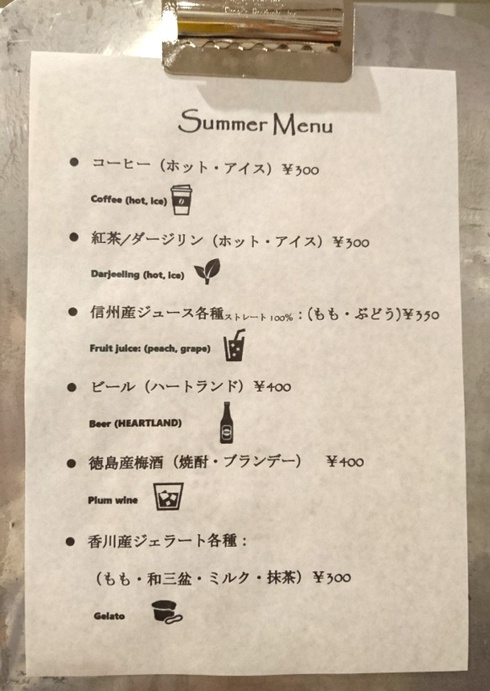 Summer Menu
● コーヒー（ホット・アイス）￥300
Coffee (hot, ice)
● 紅茶/ダージリン（ホット・アイス）￥300
Darjeeling (hot, ice)
● 信州産ジュース各種ストレート 100%：(もも・ぶどう)￥350
Fruit juice: (peach, grape)
● ビール（ハートランド）￥400
Beer (HEARTLAND)
● 徳島産梅酒（焼酎・ブランデー）　￥400
Plum wine
● 香川産ジェラート各種：
（もも・和三盆・ミルク・抹茶）￥300
Gelato